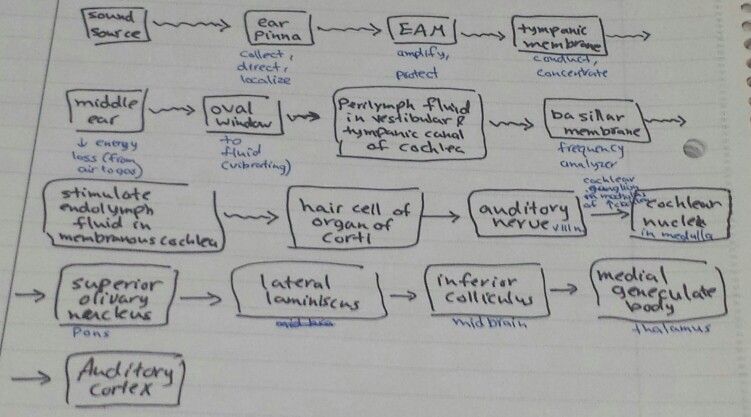 sound source
ear pinna
collect, direct, localize
EAM
amplify, protect
tympanic membrane
conduct, concentrate
middle ear
↓ energy loss (from air to
oval window
to fluid (vibrating)
Perilymph fluid in vestibular & tympanic canal of cochlea
basillar membrane
frequency analyzer
stimulate endolymph fluid in membranous cochlea
hair cell of organ of corti
auditory nerve VIII n
cochlear ganglion in modiolus of
cochlear nuclei
in medulla
superior olivary nucleus
Pons
lateral laminiscus
inferior colliculus
midbrain
medial geneculate body
thalamus
Auditory cortex